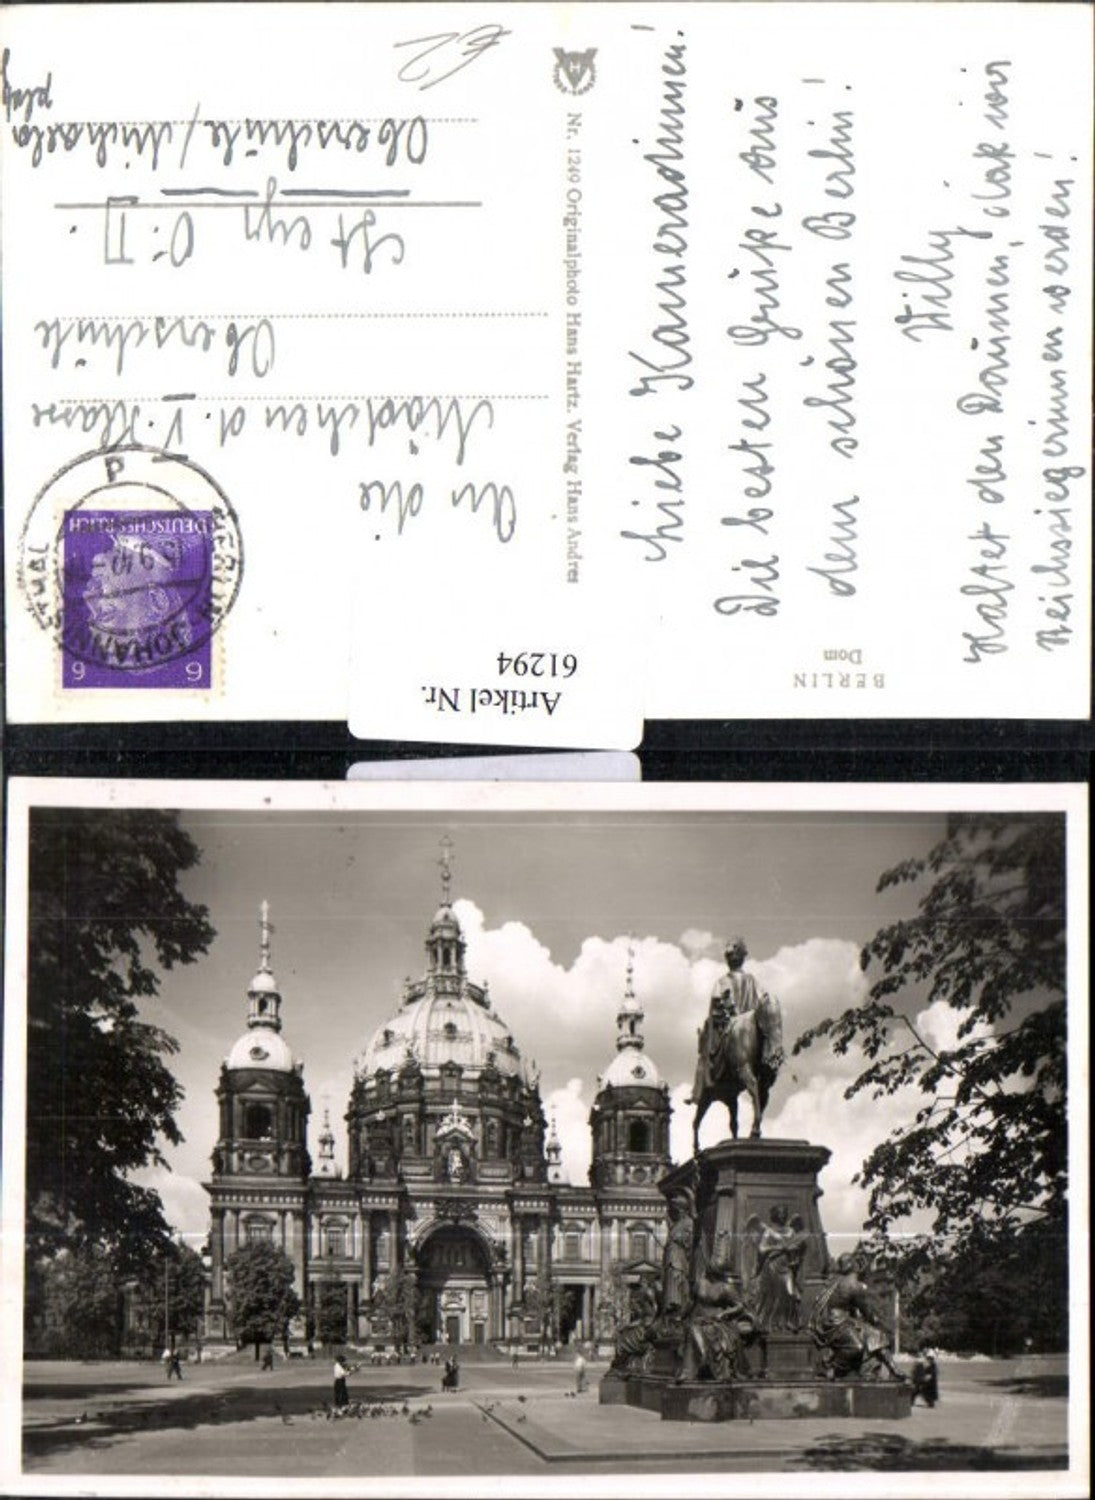 €2
Liebe Kameradinnen!
Die besten Grüße aus
dem schönen Berlin!
Willy
Haltet den Daumen, daß wir
Reichssiegerinnen werden!
Nr. 1249 Originalphoto Hans Hartz. Verlag Hans Andres
BERLIN
Dom
An die
Mädchen d. V. Klasse
Oberschule
Steyr O.D.
Oberschule / Michaela
platz
DEUTSCHES REICH
6 6
BERLIN
JOHANNISTHAL
Artikel Nr.
61294